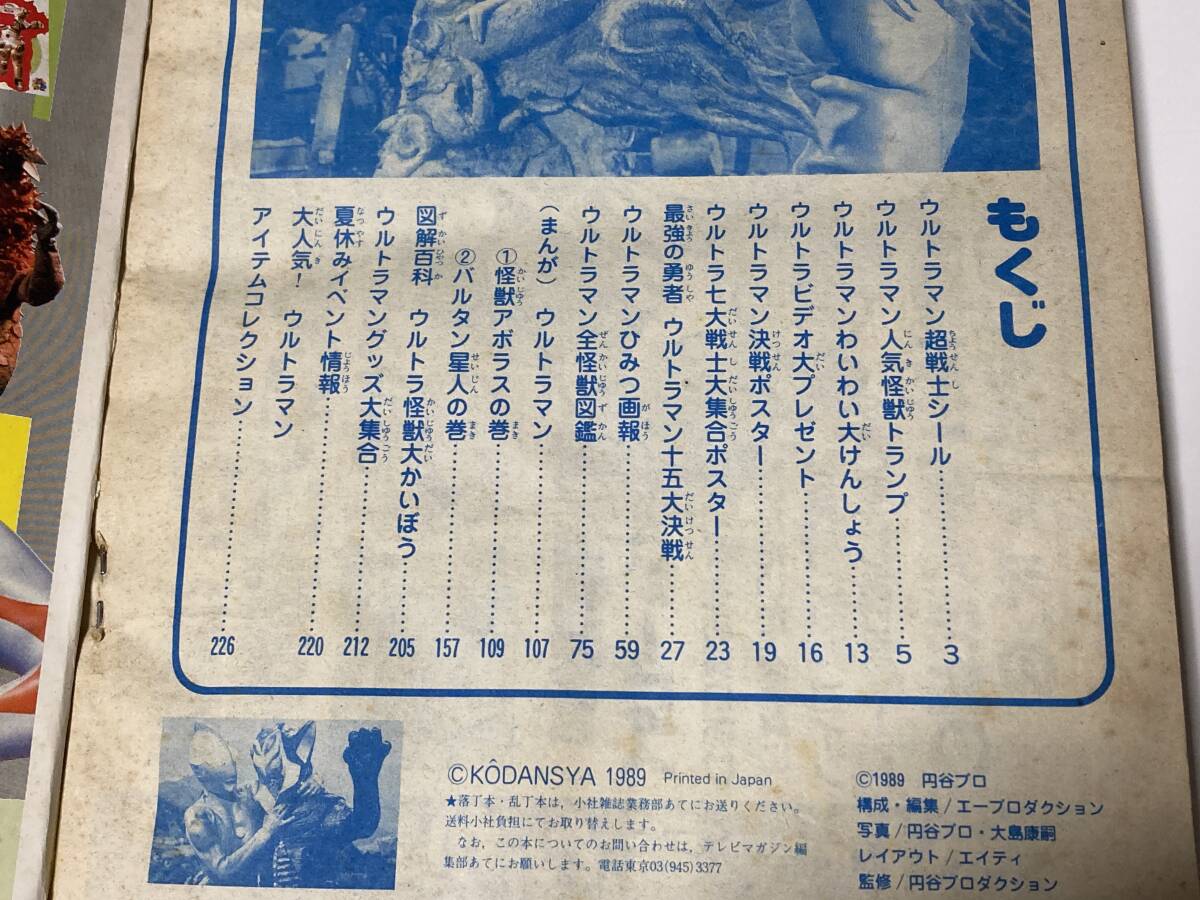 もくじ
ウルトラマン超戦士シール……3
ウルトラマン人気怪獣トランプ……5
ウルトラマンわいわい大けんしょう……13
ウルトラビデオ大プレゼント……16
ウルトラマン決戦ポスター……19
ウルトラ七大戦士大集合ポスター……23
最強の勇者 ウルトラマン十五大決戦……27
ウルトラマンひみつ画報……59
ウルトラマン全怪獣図鑑……75
(まんが) ウルトラマン……107
①怪獣アボラスの巻……109
②バルタン星人の巻……157
図解百科 ウルトラ怪獣大かいぼう……205
ウルトラマングッズ大集合……212
夏休みイベント情報……220
大人気! ウルトラマン
アイテムコレクション……226
©KÔDANSYA 1989 Printed in Japan
★落丁本・乱丁本は,小社雑誌業務部あてにお送りください。
送料小社負担にてお取り替えします。
なお,この本についてのお問い合わせは,テレビマガジン編
集部あてにお願いします。電話東京03(945)3377
©1989 円谷プロ
構成・編集/エープロダクション
写真/円谷プロ・大島康嗣
レイアウト/エイティ
監修/円谷プロダクション